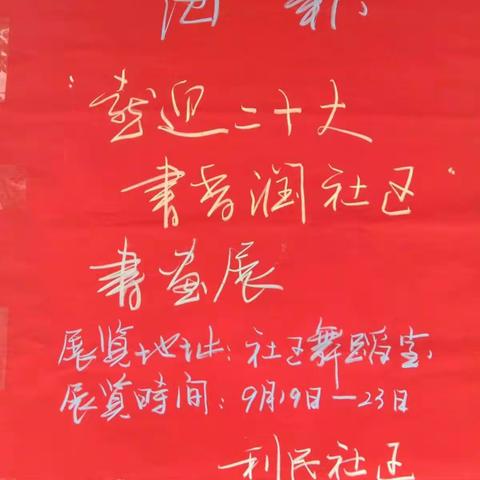 “喜迎二十大
書香润社区”
書画展
展览地址：社区舞蹈室
展览時间：9月19日—23日
利民社区